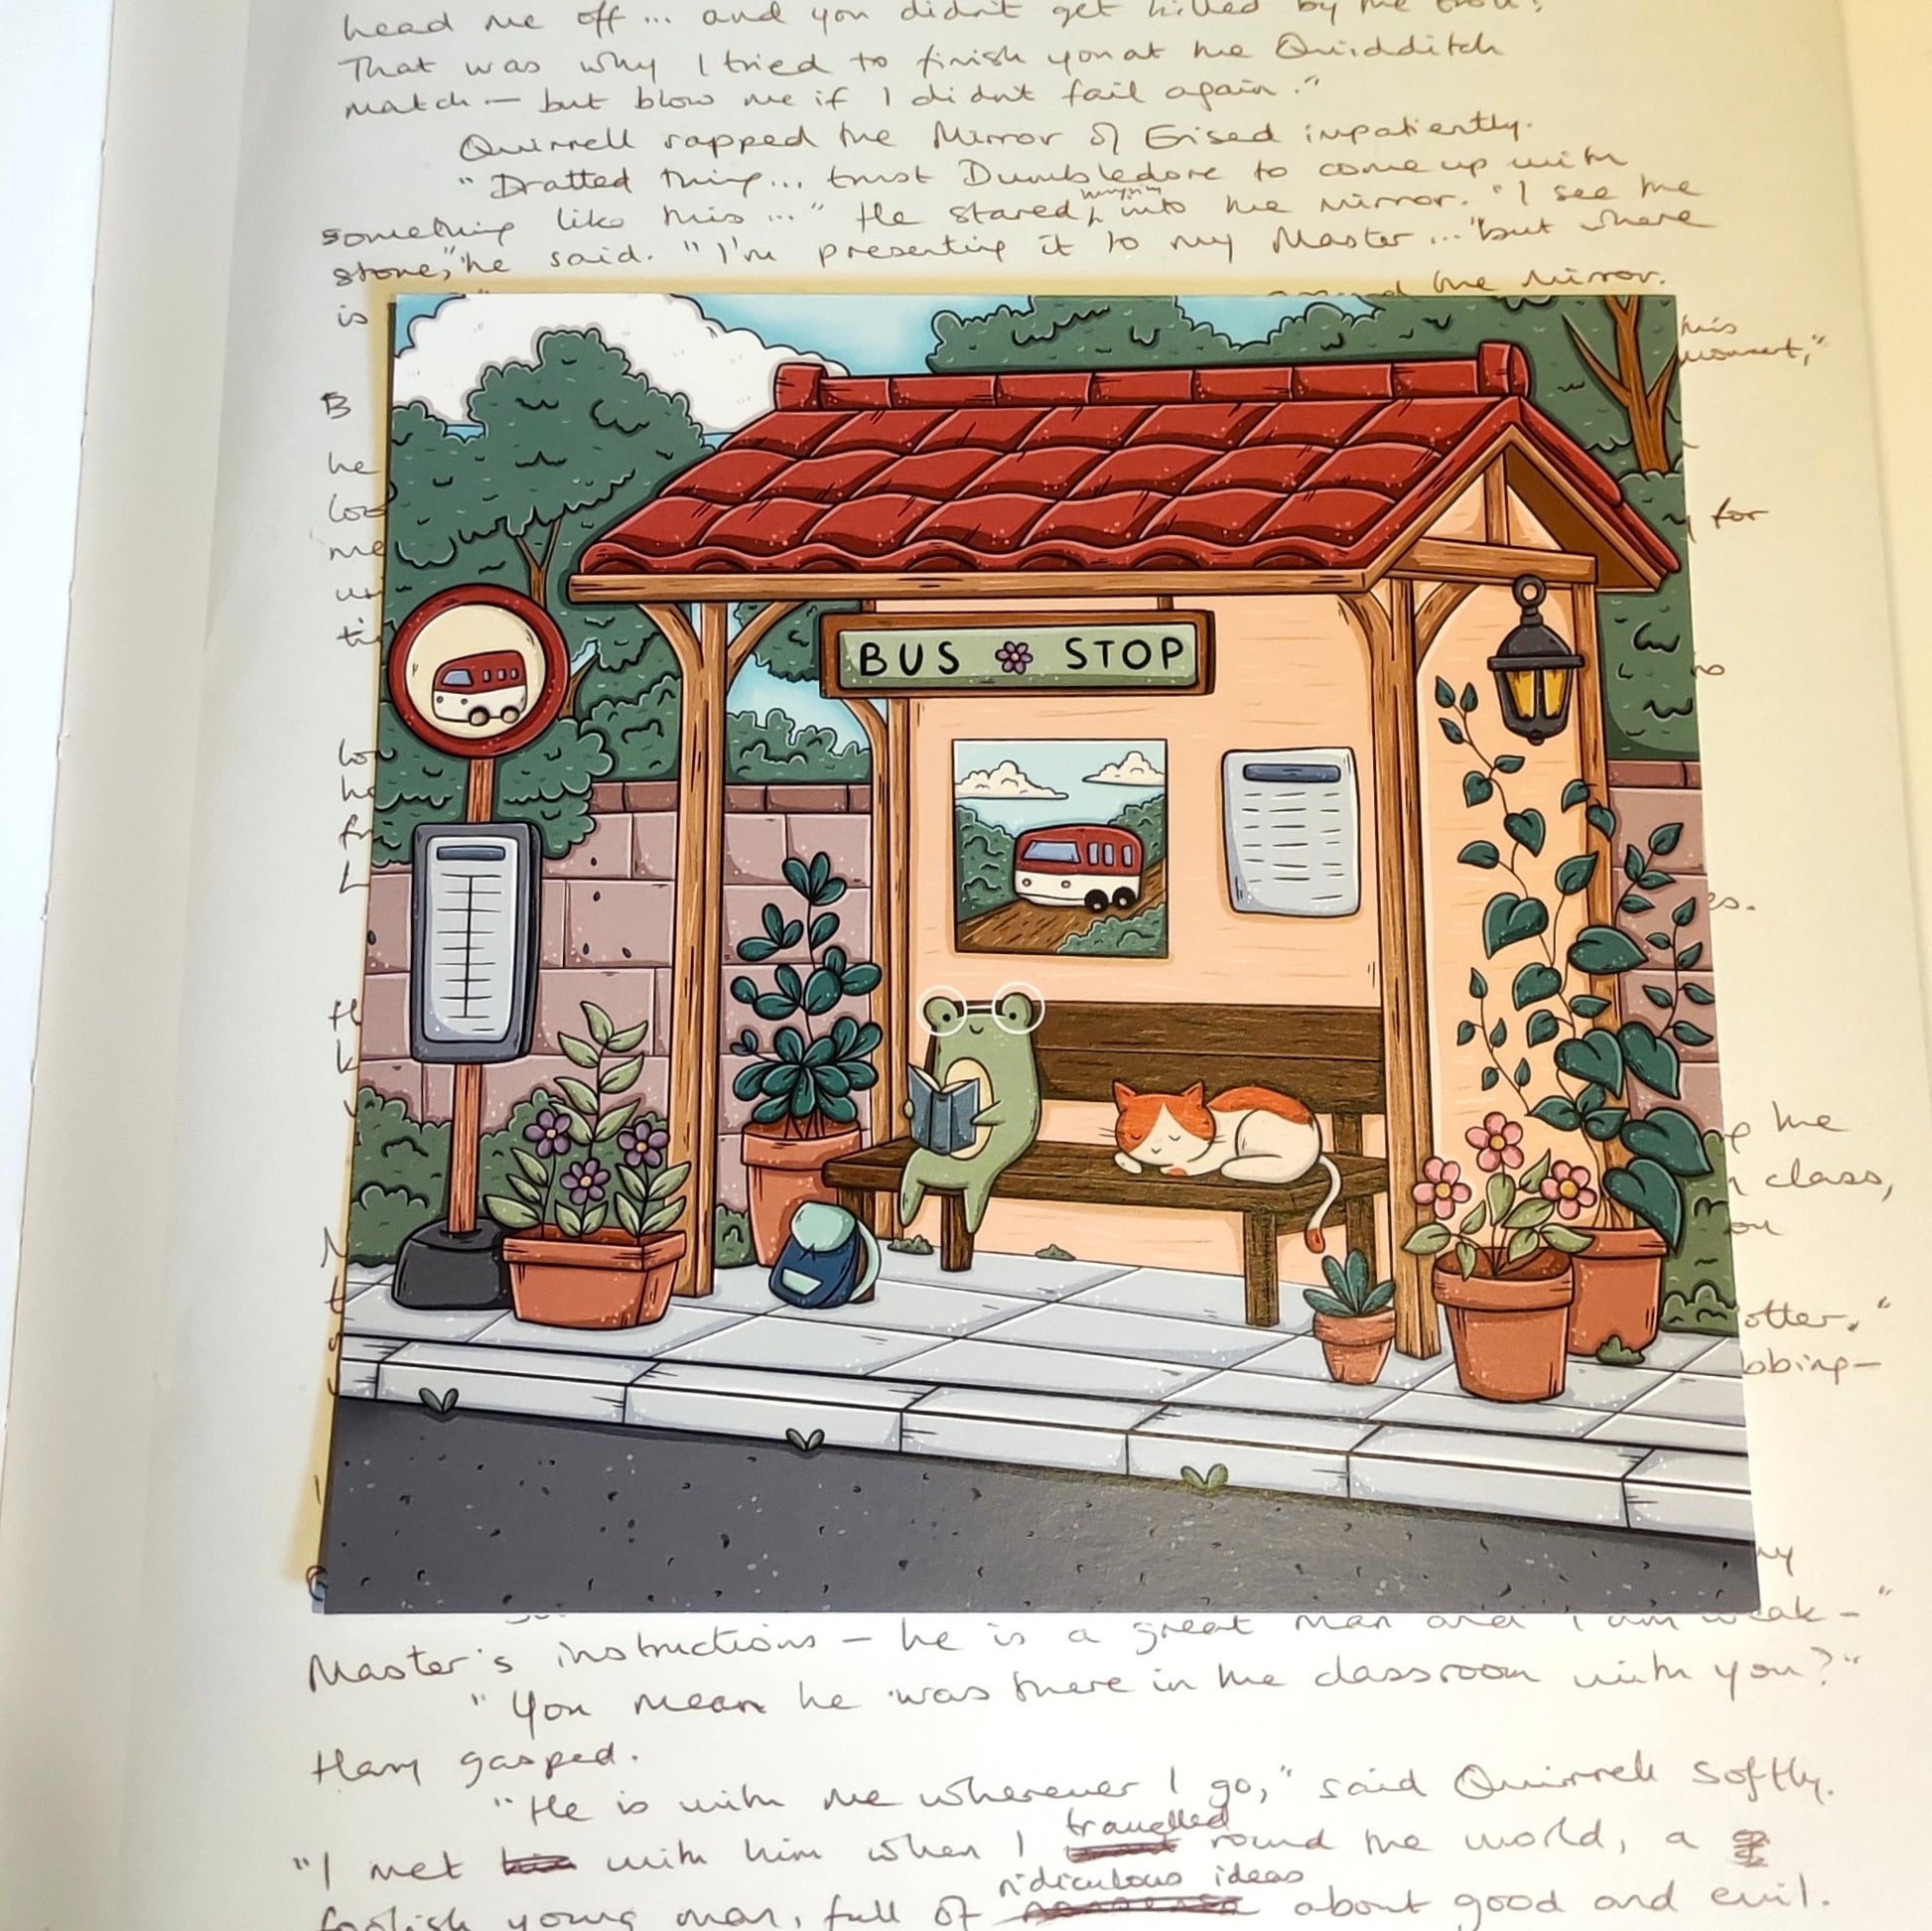 head me off... and you didn't get killed by the troll!
That was why I tried to finish you at the Quidditch
match — but blow me if I didn't fail again."
Quirrell rapped the Mirror of Erised impatiently.
"Dratted thing... trust Dumbledore to come up with
something like this..." He stared hungrily into the mirror. "I see the
stone," he said. "I'm presenting it to my Master... but where
is
the mirror.
his
moment,"
B
he
for
me
BUS STOP
he
L
k
the
class,
otter,"
bbing—
Master's instructions — he is a great man and I am weak—"
"You mean he was there in the classroom with you?"
Harry gasped.
"He is with me wherever I go," said Quirrell softly.
travelled
"I met with him when I round the world, a
ridiculous ideas
foolish young man, full of about good and evil.